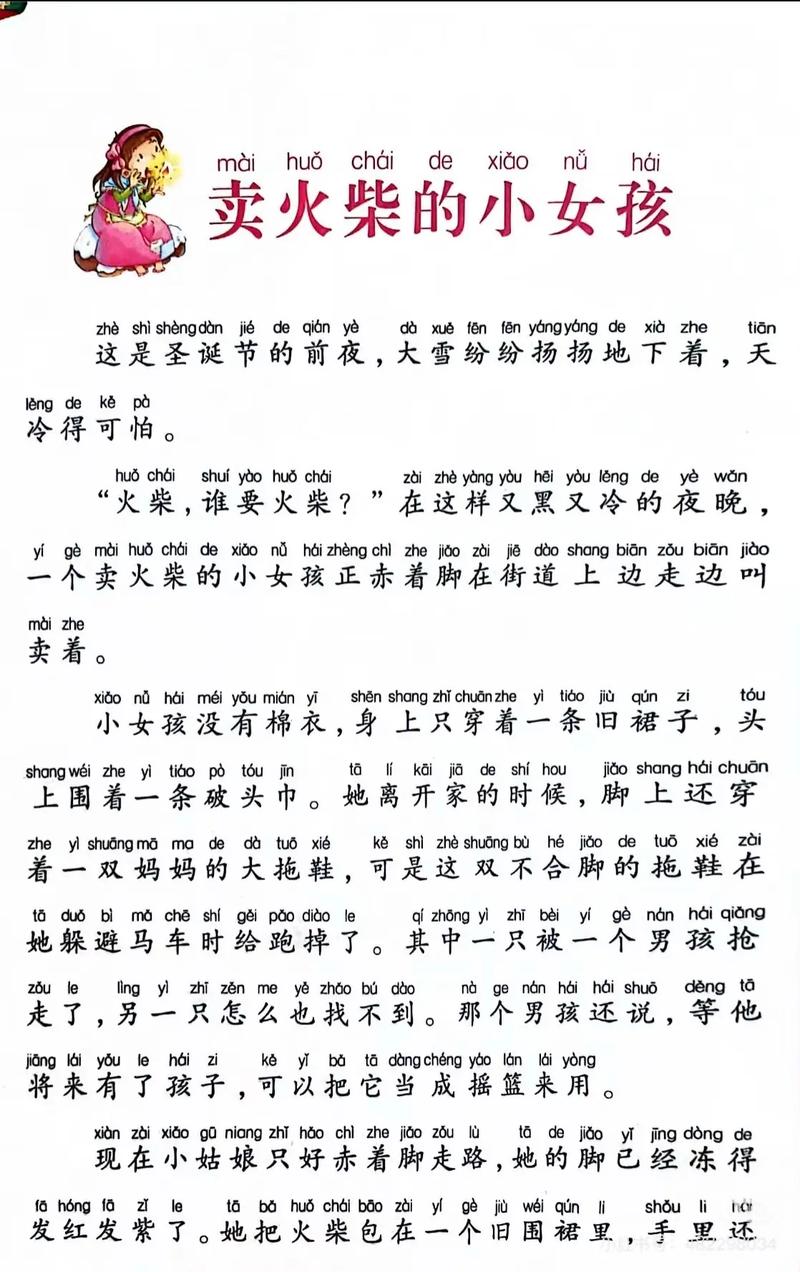 mài huǒ chái de xiǎo nǚ hái
卖火柴的小女孩
zhè shì shèng dàn jié de qián yè dà xuě fēn fēn yáng yáng de xià zhe tiān
这是圣诞节的前夜，大雪纷纷扬扬地下着，天
lěng de kě pà
冷得可怕。
huǒ chái shuí yào huǒ chái zài zhè yàng yòu hēi yòu lěng de yè wǎn
“火柴，谁要火柴？”在这样又黑又冷的夜晚，
yí gè mài huǒ chái de xiǎo nǚ hái zhèng chì zhe jiǎo zài jiē dào shang biān zǒu biān jiào
一个卖火柴的小女孩正赤着脚在街道上边走边叫
mài zhe
卖着。
xiǎo nǚ hái méi yǒu mián yī shēn shang zhǐ chuān zhe yì tiáo jiù qún zi tóu
小女孩没有棉衣，身上只穿着一条旧裙子，头
shang wéi zhe yì tiáo pò tóu jīn tā lí kāi jiā de shí hou jiǎo shang hái chuān
上围着一条破头巾。她离开家的时候，脚上还穿
zhe yì shuāng mā ma de dà tuō xié kě shì zhè shuāng bù hé jiǎo de tuō xié zài
着一双妈妈的大拖鞋，可是这双不合脚的拖鞋在
tā duǒ bì mǎ chē shí gěi pǎo diào le qí zhōng yì zhī bèi yí gè nán hái qiǎng
她躲避马车时给跑掉了。其中一只被一个男孩抢
zǒu le lìng yì zhī zěn me yě zhǎo bú dào nà ge nán hái hái shuō děng tā
走了，另一只怎么也找不到。那个男孩还说，等他
jiāng lái yǒu le hái zi kě yǐ bǎ tā dàng chéng yáo lán lái yòng
将来有了孩子，可以把它当成摇篮来用。
xiàn zài xiǎo gū niang zhǐ hǎo chì zhe jiǎo zǒu lù tā de jiǎo yǐ jīng dòng de
现在小姑娘只好赤着脚走路，她的脚已经冻得
fā hóng fā zǐ le tā bǎ huǒ chái bāo zài yí gè jiù wéi qún li shǒu li hái
发红发紫了。她把火柴包在一个旧围裙里，手里还
小红书号：482298034